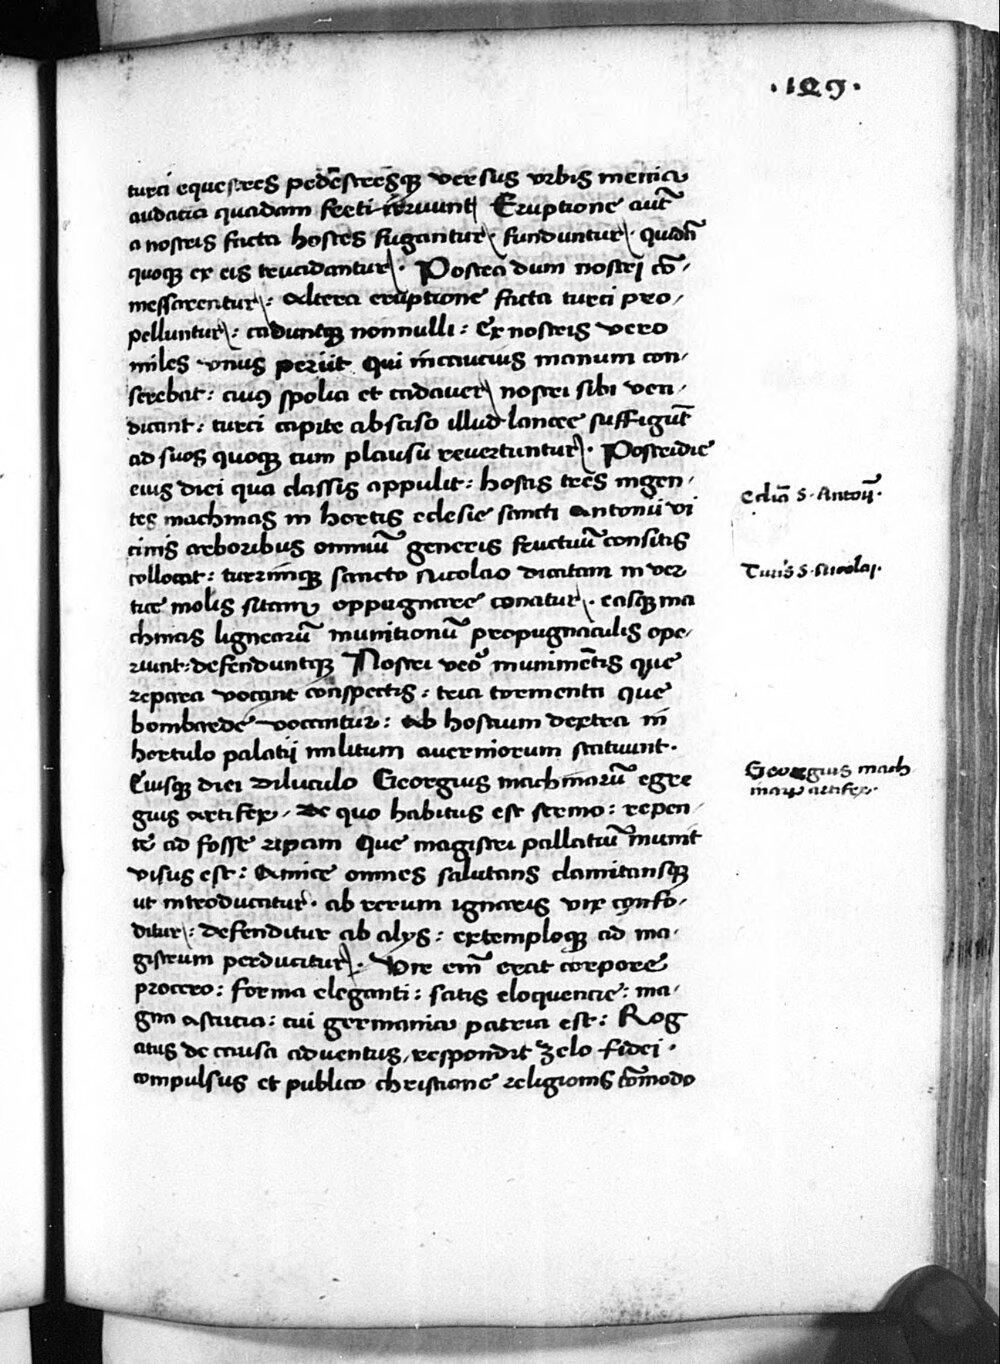 ·129·
turci equestres pedēstresqꝫ versus vrbis menia
audacia quadam freti irruunt Eruptione aut̄
a nostris facta hostes fugantur funduntur· quidā
quoqꝫ ex eis trucidantur· Postea dum nostri cō/
messarentur: Altera eruptione facta turci pro/
pelluntur: caduntqꝫ nonnulli: Ex nostris vero
miles vnus periit Qui incautius manum con/
serebat: cuiꝰ spolia et cadauer nostri sibi ven/
dicant: turci capite absciso illud lancee suffigūt
ad suos quoqꝫ cum plausu reuertuntur· Postridie
eius diei qua classis appulit: hostis tres ingen/
tes machinas in hortis eclesie sancti Antonii vi
cinis arboribus omniū generis fructuū consitis
collocat: turrimqꝫ sancto Nicolao dicatam in ver
tice molis sitam oppugnare conatur· easqꝫ ma
chinas lignearū munitionū propugnaculis ope/
riunt: defenduntqꝫ Nostri veō munimētis que
repara vocant conspectis: tria tormenta que
bombarde vocantur: Ab hostium dextra in
hortulo palatij militum auerniorum statuunt·
Eiusqꝫ diei diluculo Georgius machinarū egre
gius artifex/ De quo habitus est sermo: repen/
te ad fosse ripam Que magistri pallatiū munit
visus est: Amice omnes salutans clamitansqꝫ
ut introducatur· ab rerum ignaris vix confo/
ditur: defenditur ab alijs: extemploqꝫ ad ma·
gistrum perducitur· Vir em̄ erat corpore
procero: forma eleganti: satis eloquencie: ma/
gna astucia: cui germania patria est: Rog
atus de causa aduentus, respondit zelo fidei·
compulsus et publico christiane religionis cōmodo
Eclīa S· Antonij·
Turis S· Nicolai·
Georgius mach
inarꝝ artifex·